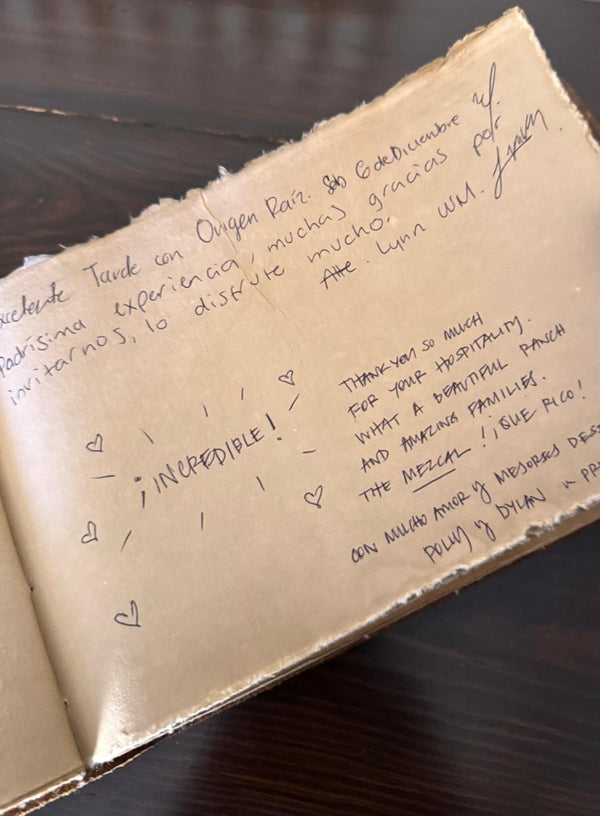 xcelente Tarde con Origen Raíz. Sáb 6 de Diciembre
Padrísima experiencia, muchas gracias por
invitarnos, lo disfrute mucho.
Atte. Lynn WM.
¡INCREDIBLE!
THANK YOU SO MUCH
FOR YOUR HOSPITALITY.
WHAT A BEAUTIFUL RANCH
AND AMAZING FAMILIES.
THE MEZCAL! ¡QUE RICO!
CON MUCHO AMOR y MEJORES DESE
POLLY y DYLAN